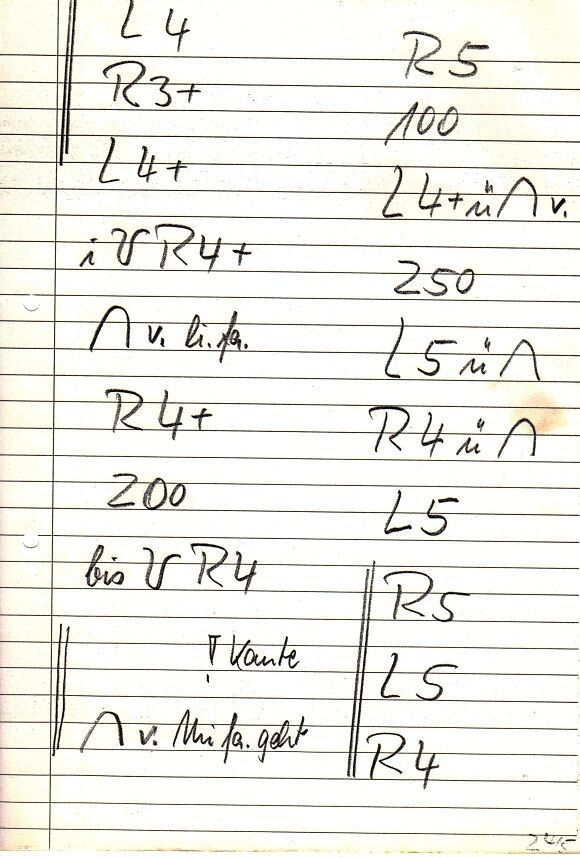 L 4
R3+
L 4+
i V R4+
∩ v. li. fa.
R 4+
200
bis V R4
! Kante
∩ v. Mi fa. geht
R 5
100
L4+ ü ∩ v.
250
L 5 ü ∩
R 4 ü ∩
L 5
R5
L 5
R4